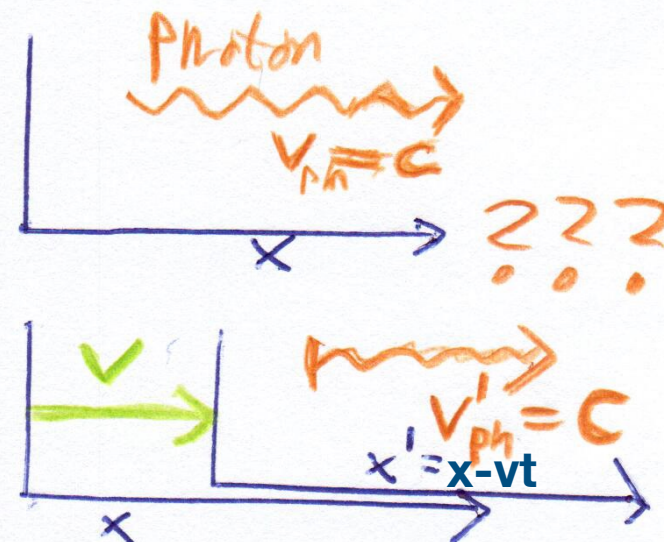 Photon
V_ph = C
x
???
V
V'_ph = C
x' = x-vt
x